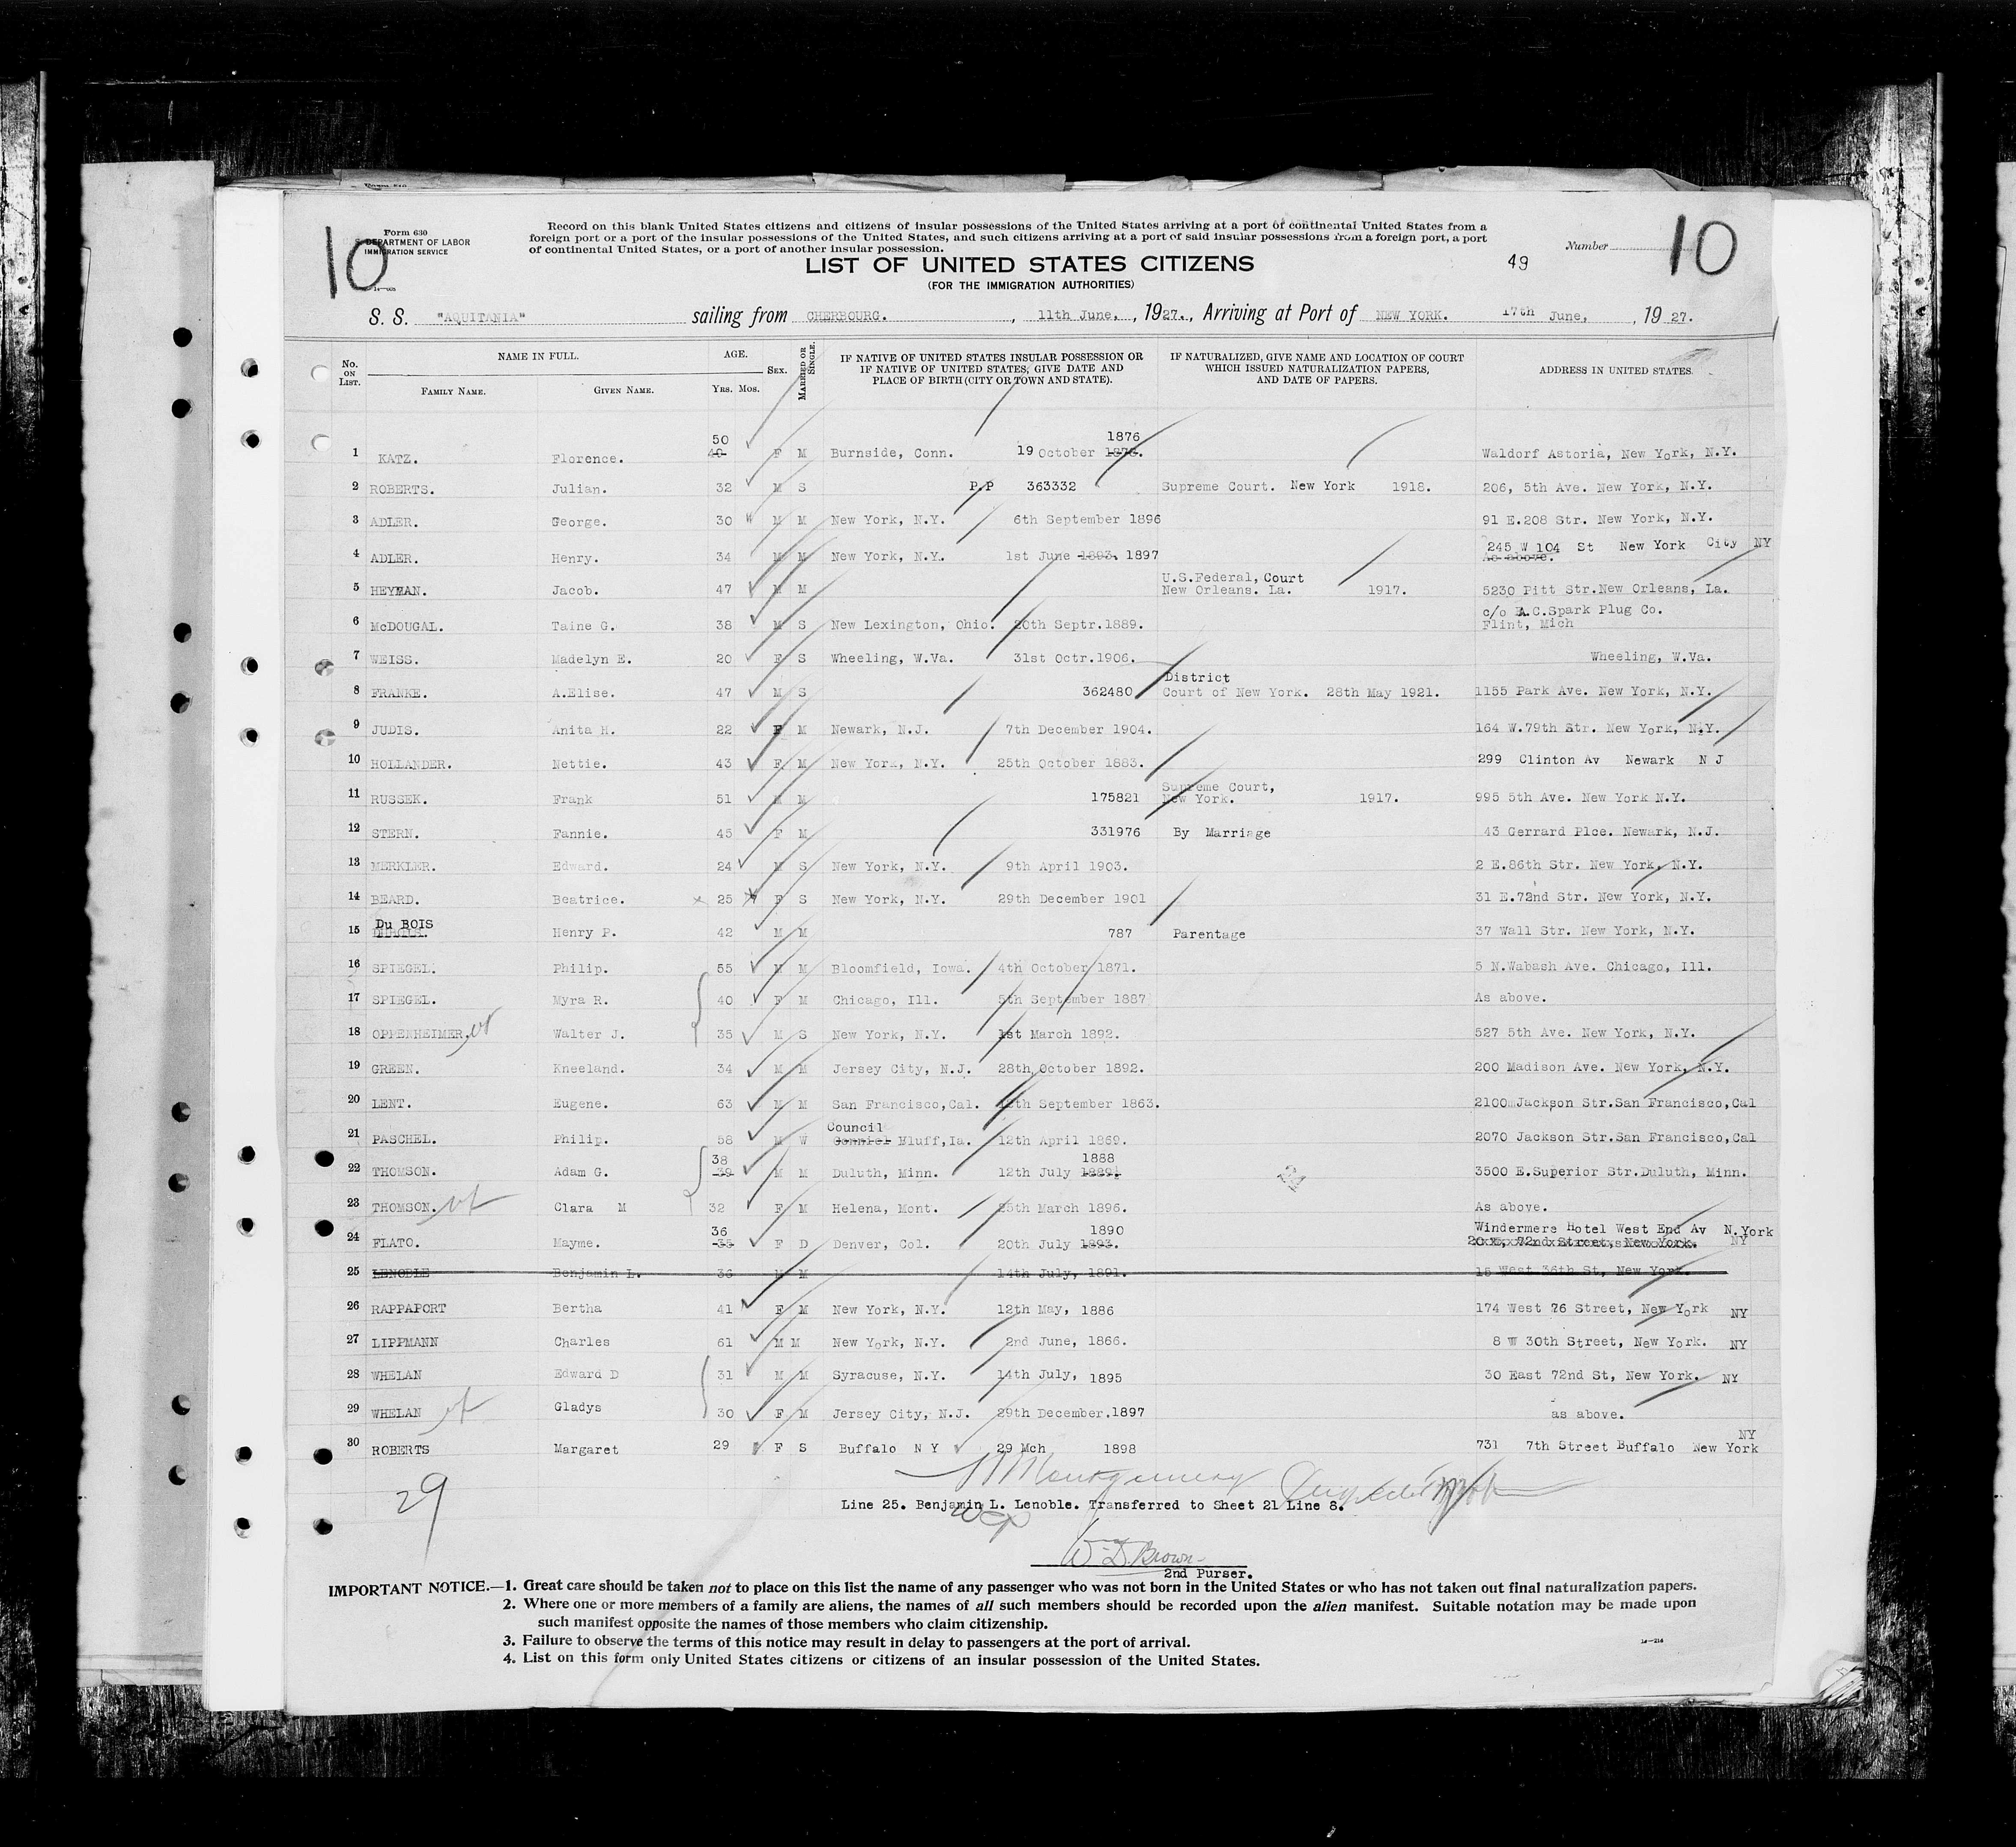 Form 630
U. S. DEPARTMENT OF LABOR
IMMIGRATION SERVICE
10
Record on this blank United States citizens and citizens of insular possessions of the United States arriving at a port of continental United States from a
foreign port or a port of the insular possessions of the United States, and such citizens arriving at a port of said insular possessions from a foreign port, a port
of continental United States, or a port of another insular possession.
Number 10
LIST OF UNITED STATES CITIZENS
49
(FOR THE IMMIGRATION AUTHORITIES)
S. S. "AQUITANIA" sailing from CHERBOURG. , 11th June, , 1927., Arriving at Port of NEW YORK. 17th June, , 19 27.
No. ON LIST. NAME IN FULL. FAMILY NAME. GIVEN NAME. AGE. Yrs. Mos. SEX. MARRIED OR SINGLE. IF NATIVE OF UNITED STATES INSULAR POSSESSION OR IF NATIVE OF UNITED STATES, GIVE DATE AND PLACE OF BIRTH (CITY OR TOWN AND STATE). IF NATURALIZED, GIVE NAME AND LOCATION OF COURT WHICH ISSUED NATURALIZATION PAPERS, AND DATE OF PAPERS. ADDRESS IN UNITED STATES.
50 1876
1 KATZ. Florence. F M Burnside, Conn. 19 October Waldorf Astoria, New York, N.Y.
2 ROBERTS. Julian. 32 M S P.P 363332 Supreme Court. New York 1918. 206, 5th Ave. New York, N.Y.
3 ADLER. George. 30 M M New York, N.Y. 6th September 1896 91 E.208 Str. New York, N.Y.
245 W 104 St New York City NY
4 ADLER. Henry. 34 M M New York, N.Y. 1st June 1893. 1897 As above.
U.S.Federal, Court
5 HEYMAN. Jacob. 47 M M New Orleans. La. 1917. 5230 Pitt Str.New Orleans, La.
c/o A.C.Spark Plug Co.
6 McDOUGAL. Taine G. 38 M S New Lexington, Ohio. 20th Septr.1889. Flint, Mich
7 WEISS. Madelyn E. 20 F S Wheeling, W.Va. 31st Octr.1906. Wheeling, W.Va.
District
8 FRANKE. A.Elise. 47 M S 362480 Court of New York. 28th May 1921. 1155 Park Ave. New York, N.Y.
9 JUDIS. Anita H. 22 F M Newark, N.J. 7th December 1904. 164 W.79th Str. New York, N.Y.
10 HOLLANDER. Nettie. 43 F M New York, N.Y. 25th October 1883. 299 Clinton Av Newark N J
Supreme Court,
11 RUSSEK. Frank 51 M M 175821 New York. 1917. 995 5th Ave. New York N.Y.
12 STERN. Fannie. 45 F M 331976 By Marriage 43 Gerrard Plce. Newark, N.J.
13 MERKLER. Edward. 24 M S New York, N.Y. 9th April 1903. 2 E.86th Str. New York, N.Y.
14 BEARD. Beatrice. x 25 F S New York, N.Y. 29th December 1901 31 E.72nd Str. New York, N.Y.
Du BOIS
15 Henry P. 42 M M 787 Parentage 37 Wall Str. New York, N.Y.
16 SPIEGEL. Philip. 55 M M Bloomfield, Iowa. 4th October 1871. 5 N.Wabash Ave. Chicago, Ill.
17 SPIEGEL. Myra R. 40 F M Chicago, Ill. 5th September 1887 As above.
18 OPPENHEIMER. Walter J. 35 M S New York, N.Y. 1st March 1892. 527 5th Ave. New York, N.Y.
19 GREEN. Kneeland. 34 M M Jersey City, N.J. 28th October 1892. 200 Madison Ave. New York, N.Y.
20 LENT. Eugene. 63 M M San Francisco,Cal. September 1863. 2100 Jackson Str.San Francisco,Cal
Council
21 PASCHEL. Philip. 58 M W Bluff,Ia. 12th April 1869. 2070 Jackson Str.San Francisco,Cal
38 1888
22 THOMSON. Adam G. 39 M M Duluth, Minn. 12th July 1889. 3500 E.Superior Str.Duluth, Minn.
23 THOMSON. Clara M 32 F M Helena, Mont. 25th March 1896. As above.
36 1890 Windermere Hotel West End Av N.York
24 FLATO. Mayme. 35 F D Denver, Col. 20th July 1893. 72nd Street, New York. NY
25 LENOBLE Benjamin L. 36 M M 14th July, 1891. 15 West 36th St, New York.
26 RAPPAPORT Bertha 41 F M New York, N.Y. 12th May, 1886 174 West 76 Street, New York NY
27 LIPPMANN Charles 61 M M New York, N.Y. 2nd June, 1866. 8 W 30th Street, New York. NY
28 WHELAN Edward D 31 M M Syracuse, N.Y. 14th July, 1895 30 East 72nd St, New York. NY
29 WHELAN Gladys 30 F M Jersey City, N.J. 29th December,1897 as above.
NY
30 ROBERTS Margaret 29 F S Buffalo N Y 29 Mch 1898 731 7th Street Buffalo New York
29
Montgomery
Line 25. Benjamin L. Lenoble. Transferred to Sheet 21 Line 8.
W. D. Brown
2nd Purser.
IMPORTANT NOTICE.—1. Great care should be taken not to place on this list the name of any passenger who was not born in the United States or who has not taken out final naturalization papers.
2. Where one or more members of a family are aliens, the names of all such members should be recorded upon the alien manifest. Suitable notation may be made upon
such manifest opposite the names of those members who claim citizenship.
3. Failure to observe the terms of this notice may result in delay to passengers at the port of arrival.
4. List on this form only United States citizens or citizens of an insular possession of the United States.
14—214